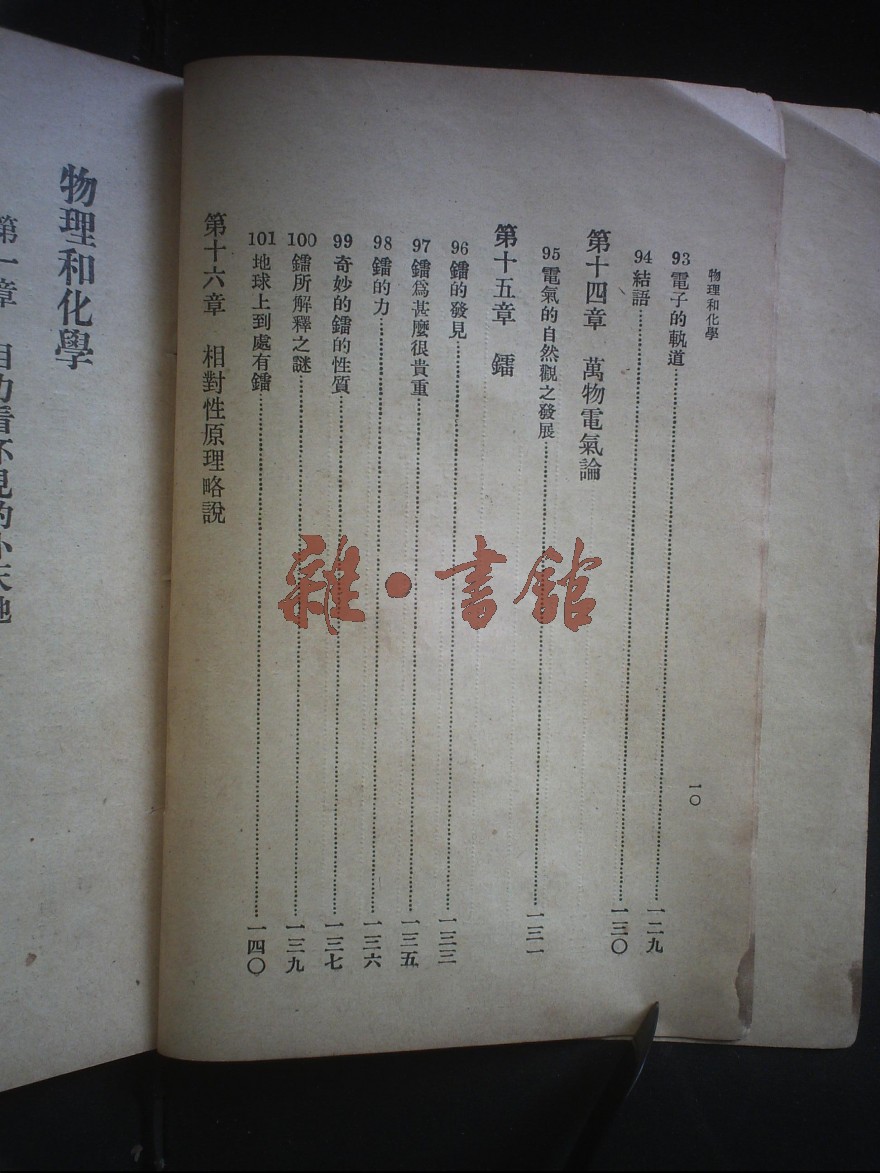 物理和化學
一〇
93 電子的軌道……一二九
94 結語……一三〇
第十四章 萬物電氣論
95 電氣的自然觀之發展……一三一
第十五章 鐳
96 鐳的發見……一三三
97 鐳爲甚麼很貴重……一三五
98 鐳的力……一三六
99 奇妙的鐳的性質……一三七
100 鐳所解釋之謎……一三九
101 地球上到處有鐳……一四〇
第十六章 相對性原理略說
物理和化學
第一章 目力看不見的小天地
雜·書館